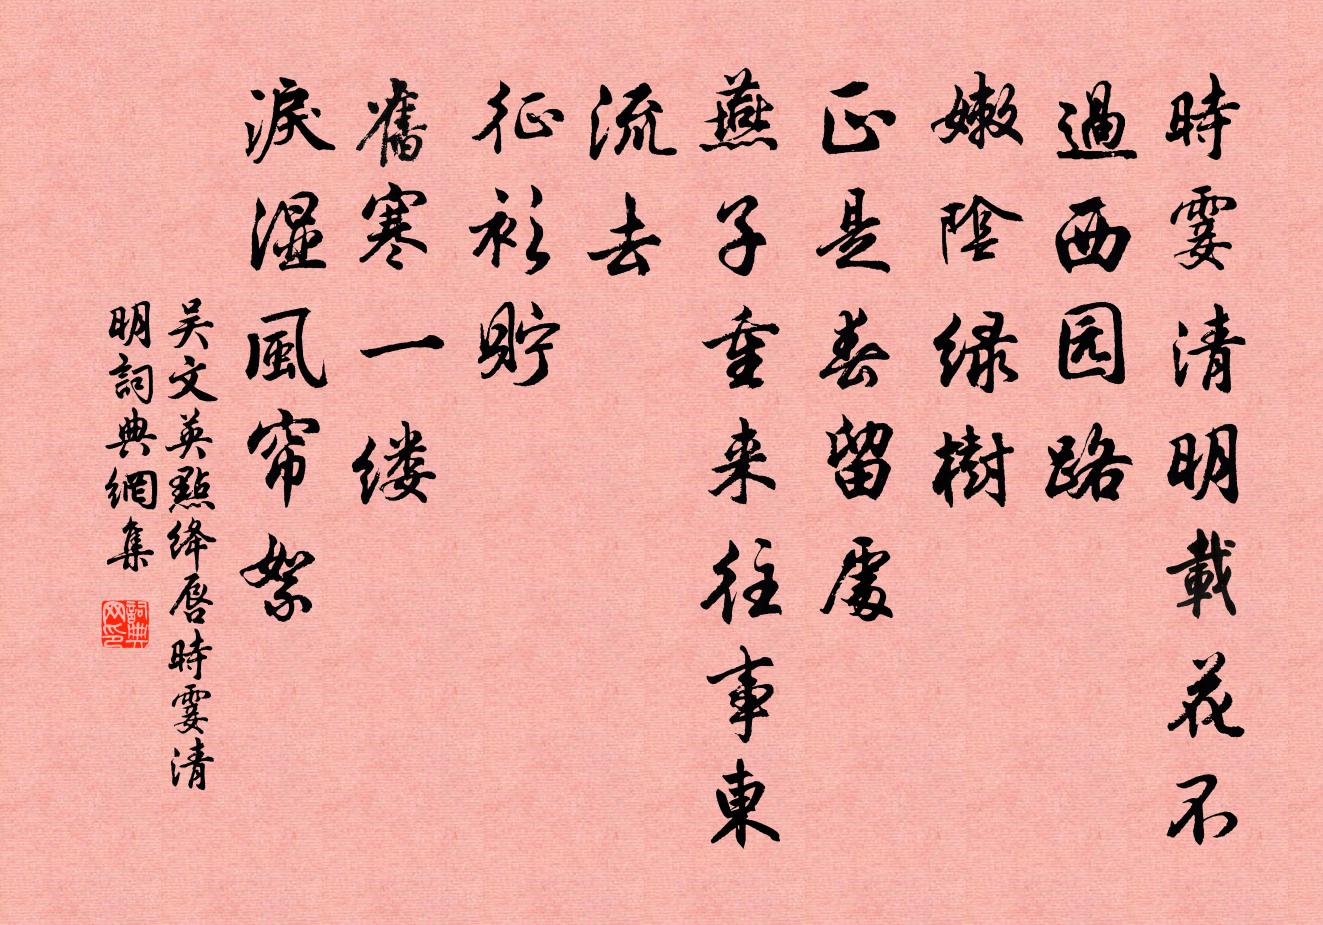 時霎清明載花不
過西园路
嫩陰緑樹
正是春留處
燕子重来往事東
流去
征衫貯
舊寒一缕
淚湿風帘絮
吴文英點绛唇時霎清
明詞典網集
詞典
网印